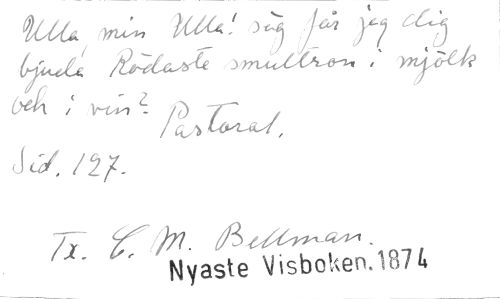 Ulla, min Ulla! säg får jag dig
bjuda Rödaste smultron i mjölk
och i vin?
Pastoral.
Sid. 127.
Tx. C. M. Bellman.
Nyaste Visboken. 1874